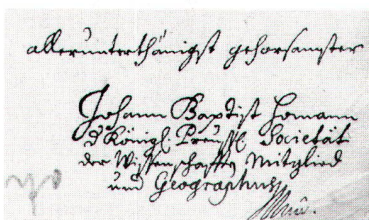 allerunterthänigst gehorsamster
Johann Baptist Homann
d Königl. Preuss. Societät
der Wissenschafften Mitglied
und Geographus